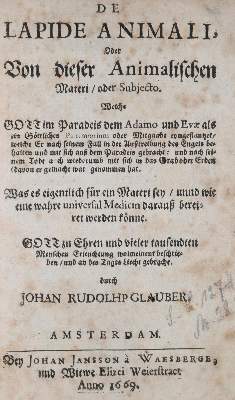 DE
LAPIDE ANIMALI,
Oder
Von dieser Animalischen
Materi / oder Subjecto.
Welche
GOTT im Paradeis dem Adamo und Evæ als
ein Göttlichen oder Mitgaabe eingepflantzet/
welche Er nach seinem Fall in der Außtreibung des Engels be-
halten und mit sich auß dem Paradeis gebracht: und nach sei-
nem Tode auch wiederumb mit sich in das Grab oder Erden
(davon er gemacht war) genommen hat.
Was es eigentlich für ein Materi sey / unnd wie
eine wahre universal Medicin darauß berei-
tet werden könne.
GOTT zu Ehren und vieler tausendten
Menschen Erleuchtung wolmeinent beschrie-
ben / und an des Tages Liecht gebracht.
durch
JOHAN RUDOLHP GLAUBER,
AMSTERDAM.
Bey JOHAN JANSSON à WAESBERGE,
und Witwe Elizei Weierstraet
Anno 1669.